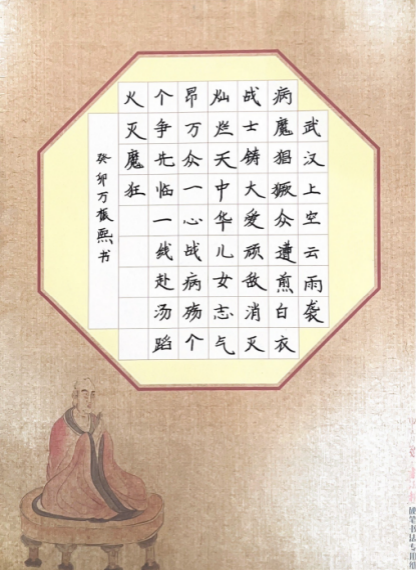 武汉上空云雨袭
病魔猖獗众遭煎白衣
战士铸大爱顽敌消灭
灿烂天中华儿女志气
昂万众一心战病殇个
个争先临一线赴汤蹈
火灭魔狂
癸卯万振熙书
硬笔书法专用纸